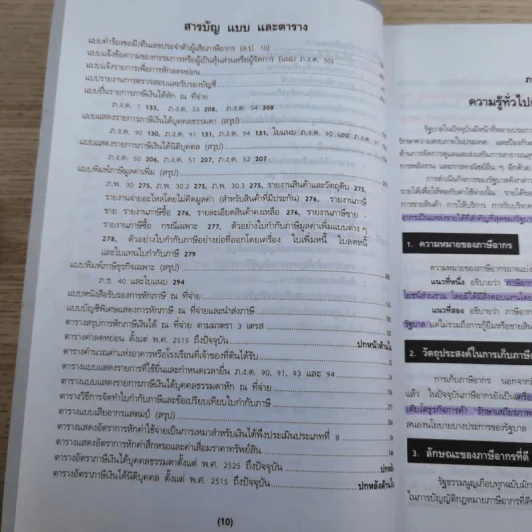 สารบัญ แบบ และตาราง
แบบคำร้องขอมีเลขประจำตัวผู้เสียภาษีอากร (ล.ป. 10)
แบบแจ้งข้อความของกรรมการหรือผู้เป็นหุ้นส่วนหรือผู้จัดการ (แนบ ภ.ง.ด. 50)
แบบแจ้งรายการเพื่อการหักลดหย่อน
แบบรายงานการตรวจสอบและรับรองบัญชี
แบบยื่นรายการภาษีเงินได้หัก ณ ที่จ่าย
ภ.ง.ด. 1 133, ภ.ง.ด. 53 208, ภ.ง.ด. 54 208
แบบแสดงรายการภาษีเงินได้บุคคลธรรมดา (สรุป)
ภ.ง.ด. 90 130, ภ.ง.ด. 91 131, ภ.ง.ด. 94 131, ใบแนบ ภ.ง.ด. 90 และ ภ.ง.ด. 91
แบบแสดงรายการภาษีเงินได้นิติบุคคล (สรุป)
ภ.ง.ด. 50 206, ภ.ง.ด. 51 207, ภ.ง.ด. 52 207
แบบพิมพ์ภาษีมูลค่าเพิ่ม (สรุป)
ภ.พ. 30 275, ภ.พ. 30.2 275, ภ.พ. 30.3 275, รายงานสินค้าและวัตถุดิบ 275,
รายงานจ่ายอะไหล่โดยไม่คิดมูลค่า (สำหรับสินค้าที่มีประกัน) 276, รายงานภาษี
ขาย รายงานภาษีซื้อ 276, รายละเอียดสินค้าคงเหลือ 276, รายงานภาษีขาย -
รายงานภาษีซื้อ กรณีเฉพาะ 277, ตัวอย่างใบกำกับภาษีมูลค่าเพิ่มแบบต่าง ๆ
278, ตัวอย่างใบกำกับภาษีอย่างย่อที่ออกโดยเครื่อง ใบเพิ่มหนี้ ใบลดหนี้
และใบแทนใบกำกับภาษี 279
แบบพิมพ์ภาษีธุรกิจเฉพาะ (สรุป)
ธ. 40 และใบแนบ 294
แบบหนังสือรับรองการหักภาษี ณ ที่จ่าย
แบบบัญชีพิเศษแสดงการหักภาษี ณ ที่จ่ายและนำส่งภาษี
ตารางสรุปการหักภาษีเงินได้ ณ ที่จ่าย ตามมาตรา 3 เตรส
ตารางค่าลดหย่อน ตั้งแต่ พ.ศ. 2515 ถึงปัจจุบัน ปกหน้าด้านใน
ตารางคำนวณค่าแห่งอาคารหรือโรงเรือนที่เจ้าของที่ดินได้รับ
ตารางแบบแสดงรายการที่ใช้ยื่นและกำหนดเวลายื่น ภ.ง.ด. 90, 91, 93 และ 94
ตารางแบบแสดงรายการภาษีเงินได้บุคคลธรรมดาหัก ณ ที่จ่าย
ตารางวิธีการจัดทำใบกำกับภาษีและข้อเปรียบเทียบใบกำกับภาษี
ตารางแบบเสียอากรแสตมป์ (สรุป)
ตารางแสดงอัตราการหักค่าใช้จ่ายเป็นการเหมาสำหรับเงินได้พึงประเมินประเภทที่ 8
ตารางแสดงอัตราการหักค่าสึกหรอและค่าเสื่อมราคาทรัพย์สิน
ตารางอัตราภาษีเงินได้บุคคลธรรมดาตั้งแต่ พ.ศ. 2525 ถึงปัจจุบัน
ตารางอัตราภาษีเงินได้นิติบุคคล ตั้งแต่ พ.ศ. 2515 ถึงปัจจุบัน ปกหลังด้านใน
(10)
ความรู้ทั่วไป
รัฐบาลในปัจจุบันมีหน้าที่หลายประการ
รักษาความสงบภายในประเทศ และป้องกัน
ด้านการจัดการดูแลและส่งเสริมการสาธารณสุข
การพลังงาน และการพาณิชย์อื่น ๆ อีกด้วย
การดำเนินกิจการของรัฐบาลดังกล่าว
ขายสินค้า การให้บริการ การรับบริจาค
อากรเป็นแหล่งรายได้ที่สำคัญที่สุดของรัฐบาล
1. ความหมายของภาษีอากร
ความหมายของภาษีอากรอาจแบ่ง
แนวที่หนึ่ง อธิบายว่า ภาษีอากร
แนวที่สอง อธิบายว่า ภาษีอากร
รัฐบาล แต่ไม่รวมถึงการกู้ยืมหรือขาย
2. วัตถุประสงค์ในการเก็บภาษี
การเก็บภาษีอากร นอกจาก
แล้ว ในปัจจุบันภาษีอากรยังเป็นเครื่อง
เติบโตธุรกิจการค้า รักษาเสถียรภาพ
สนองนโยบายบางประการของรัฐบาล
3. ลักษณะของภาษีอากรที่ดี
รัฐธรรมนูญเกือบทุกฉบับมัก
ในการบัญญัติกฎหมายภาษีอากรที่ดี